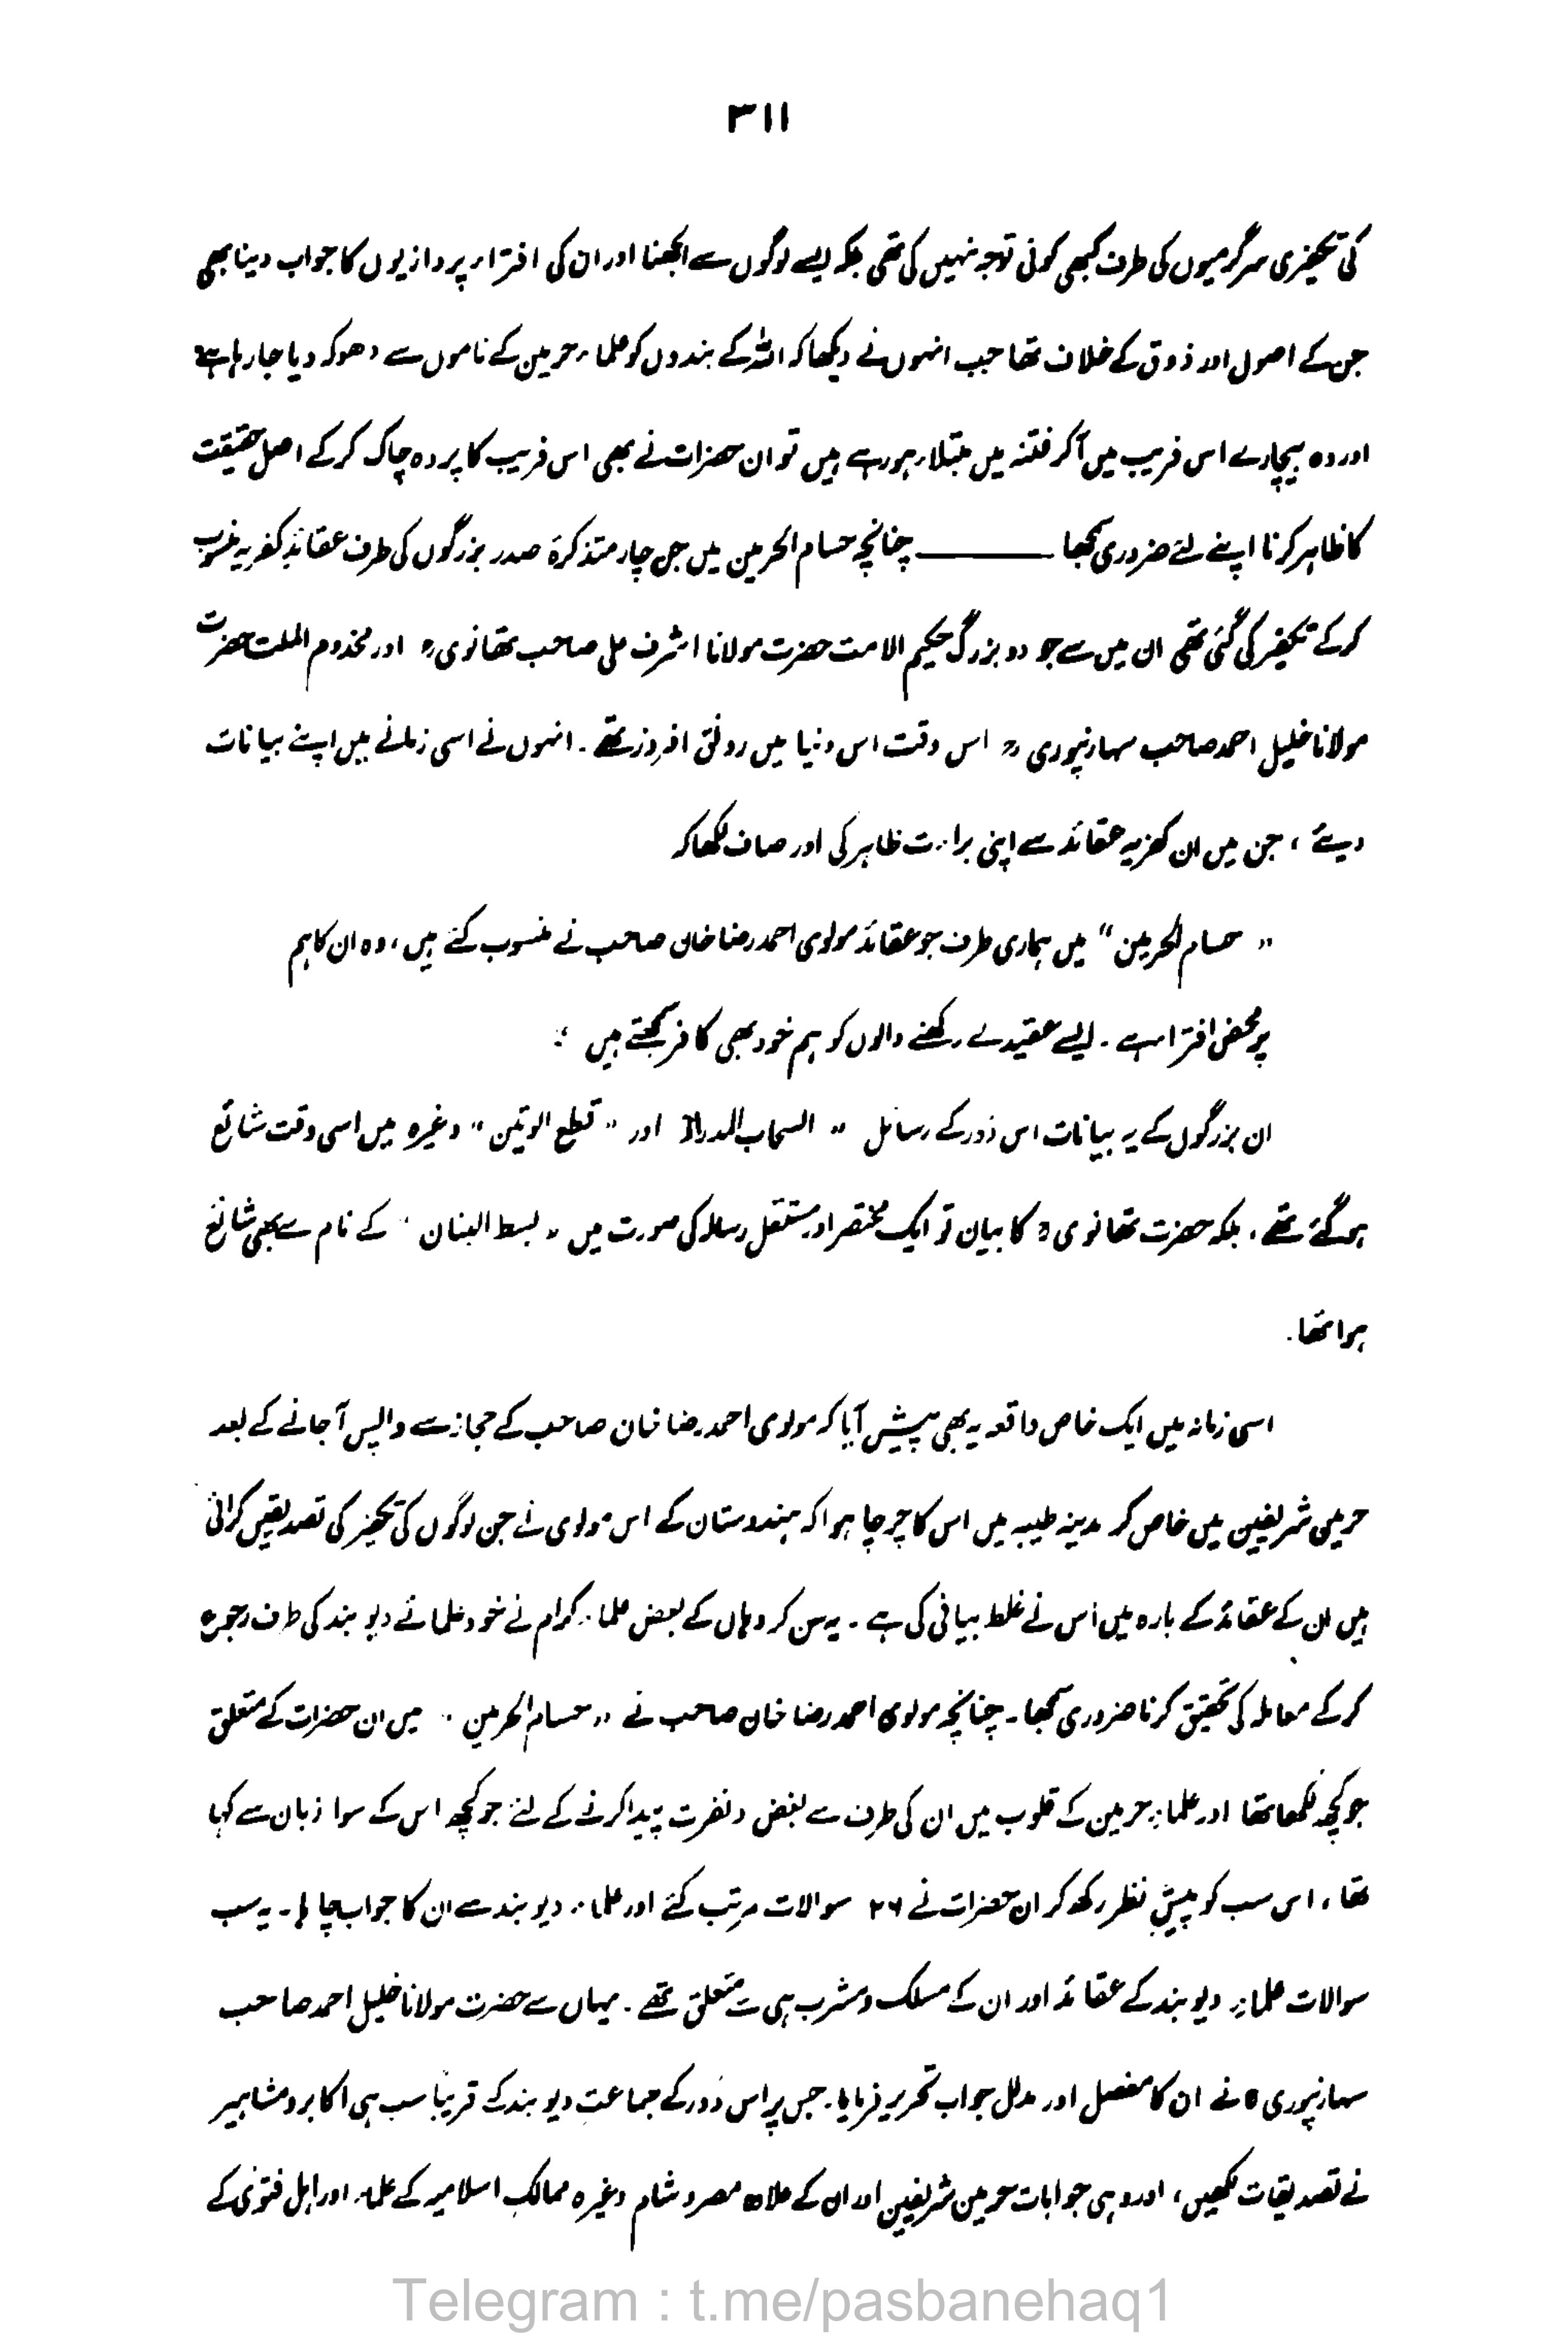 ۳۱۱
کی تکفیری سرگرمیوں کی طرف کبھی کوئی توجہ نہیں کی تھی بلکہ ایسے لوگوں سے الجھنا اور ان کی افتراء پردازیوں کا جواب دینا بھی
جن کے اصول اور ذوق کے خلاف تھا جب انہوں نے دیکھا کہ اللہ کے بندوں کو علماء حرمین کے ناموں سے دھوکہ دیا جا رہا ہے
اور وہ بیچارے اس فریب میں آکر فتنہ میں مبتلا ہو رہے ہیں تو ان حضرات نے بھی اس فریب کا پردہ چاک کر کے اصل حقیقت
کا ظاہر کرنا اپنے لئے ضروری سمجھا ——— چنانچہ حسام الحرمین میں جن چار متذکرۂ صدر بزرگوں کی طرف عقائد کفریہ منسوب
کر کے تکفیر کی گئی تھی ان میں سے جو دو بزرگ حکیم الامت حضرت مولانا اشرف علی صاحب تھانویؒ اور مخدوم الملت حضرت
مولانا خلیل احمد صاحب سہارنپوریؒ اس وقت اس دنیا میں رونق افروز تھے۔ انہوں نے اسی زمانے میں اپنے بیانات
دیئے ، جن میں ان کفریہ عقائد سے اپنی براءت ظاہر کی اور صاف لکھا کہ
" حسام الحرمین " میں ہماری طرف جو عقائد مولوی احمد رضا خان صاحب نے منسوب کئے ہیں ، وہ ان کا ہم
پر محض افترا ہے ۔ ایسے عقیدے رکھنے والوں کو ہم خود بھی کافر سمجھتے ہیں "
ان بزرگوں کے یہ بیانات اس دَور کے رسائل " السحاب المدرار" اور " قطع الوتین " وغیرہ میں اسی وقت شائع
ہو گئے تھے ، بلکہ حضرت تھانویؒ کا بیان تو ایک مختصر اور مستقل رسالہ کی صورت میں " بسط البنان " کے نام سے بھی شائع
ہوا تھا ۔
اسی زمانہ میں ایک خاص واقعہ یہ بھی پیش آیا کہ مولوی احمد رضا خان صاحب کے حجاز سے واپس آ جانے کے بعد
حرمین شریفین میں خاص کر مدینہ طیبہ میں اس کا چرچا ہوا کہ ہندوستان کے اس مولوی نے جن لوگوں کی تکفیر کی تصدیقیں کرائی
ہیں ان کے عقائد کے بارہ میں اُس نے غلط بیانی کی ہے ۔ یہ سن کر وہاں کے بعض علماء کرام نے خود علمائے دیوبند کی طرف رجوع
کر کے معاملہ کی تحقیق کرنا ضروری سمجھا ۔ چنانچہ مولوی احمد رضا خان صاحب نے " حسام الحرمین " میں ان حضرات کے متعلق
جو کچھ لکھا تھا اور علماء حرمین کے قلوب میں ان کی طرف سے بغض و نفرت پیدا کرنے کے لئے جو کچھ اس کے سوا زبان سے کہا
تھا ، اس سب کو پیش نظر رکھ کر ان حضرات نے ۲۶ سوالات مرتب کئے اور علماء دیوبند سے ان کا جواب چاہا ۔ یہ سب
سوالات علماء دیوبند کے عقائد اور ان کے مسلک و مشرب ہی سے متعلق تھے ۔ یہاں سے حضرت مولانا خلیل احمد صاحب
سہارنپوریؒ نے ان کا مفصل اور مدلل جواب تحریر فرمایا ۔ جس پر اس دَور کے جماعتِ دیوبند کے قریباً سب ہی اکابر و مشاہیر
نے تصدیقات لکھیں ، اور وہی جوابات حرمین شریفین اور ان کے علاوہ مصر و شام وغیرہ ممالک اسلامیہ کے علماء اور اہل فتویٰ کے
Telegram : t.me/pasbanehaq1